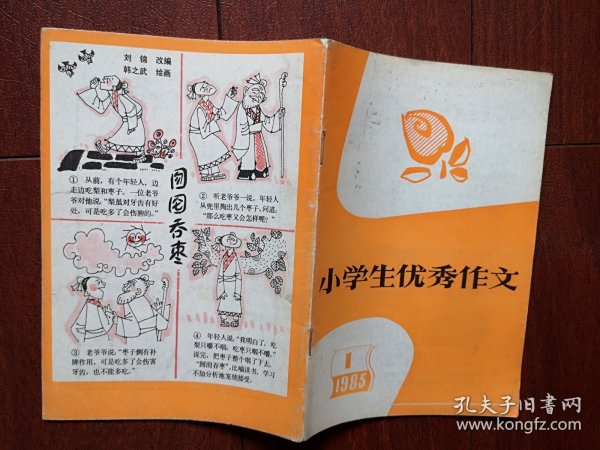 刘锦 改编
韩之武 绘画
囫囵吞枣
① 从前,有个年轻人,边
走边吃梨和枣子。一位老爷
爷对他说,“梨虽对牙齿有好
处,可是吃多了会伤脾的。”
② 听老爷爷一说,年轻人
从兜里掏出几个枣子,问道:
“那么吃枣又会怎样呢?”
③ 老爷爷说,“枣子倒有补
脾作用,可是吃多了会伤害
牙齿,也不能多吃。”
④ 年轻人说,“我明白了,吃
梨只嚼不咽;吃枣只咽不嚼。”
说完,把枣子整个咽了下去。
“囫囵吞枣”,比喻读书、学习
不加分析地笼统接受。
小学生优秀作文
1
1985
孔夫子旧书网
www.kongfz.com